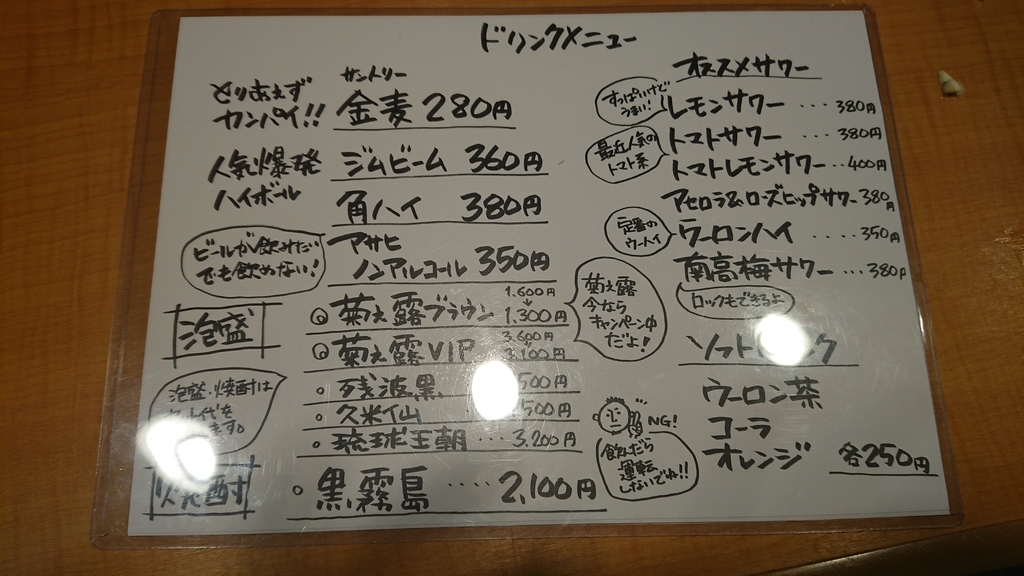 ドリンクメニュー
とりあえず
カンパイ!!
サントリー
金麦 280円
人気爆発
ハイボール
ジムビーム 360円
角ハイ 380円
ビールが飲みたい
でも飲めない!
アサヒ
ノンアルコール 350円
泡盛
1.600円
◎菊之露ブラウン 1.300円
3.600円
◎菊之露VIP 3.100円
菊之露
今なら
キャンペーン中
だよ!
・残波黒 500円
・久米仙 500円
・琉球王朝 ・・・ 3.200円
泡盛・焼酎は
焼酎
・黒霧島 ・・・・ 2,100円
オススメサワー
すっぱいけど
うまい!
レモンサワー ・・・・ 380円
最近人気の
トマト系
トマトサワー ・・・・ 380円
トマトレモンサワー ・・・ 400円
アセロラ&ローズヒップサワー 380円
定番の
ウーハイ
ウーロンハイ ・・・・ 350円
南高梅サワー ・・・ 380円
ロックもできるよ
ソフトドリンク
ウーロン茶
コーラ
オレンジ
各250円
NG!
飲んだら
運転
しないでね!!